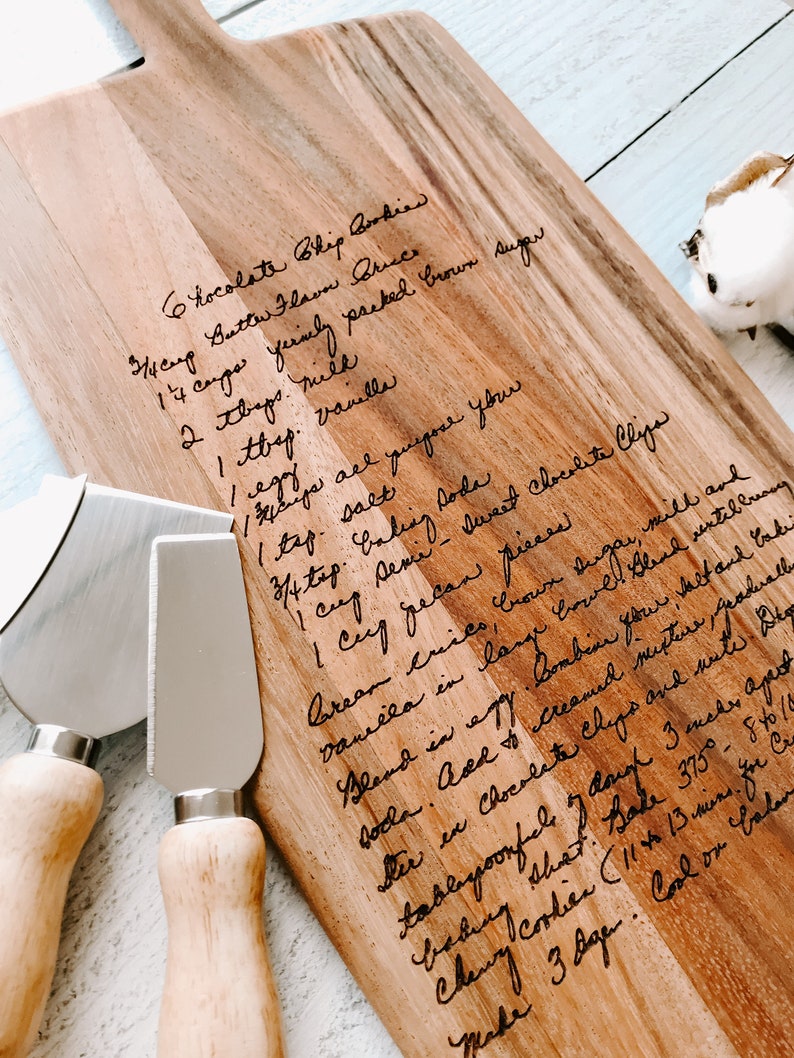 Chocolate Chip Cookies
3/4 cup Butter Flavor Crisco
1 1/4 cups firmly packed brown sugar
2 tbsps. milk
1 tbsp. vanilla
1 egg
1 3/4 cups all purpose flour
1 tsp. salt
3/4 tsp. baking soda
1 cup semi-sweet chocolate Chips
1 cup pecan pieces
Cream crisco, brown sugar, milk and
vanilla in large bowl. Blend until creamy
Blend in egg. Combine flour, salt and baking
soda. Add to creamed mixture, gradually
Stir in chocolate chips and nuts. Drop
tablespoonfuls of dough 3 inches apart
baking sheet. Bake 375° - 8 to 10
Chewy cookies (11 to 13 mins. for
Cool on
Make 3 Dozen.